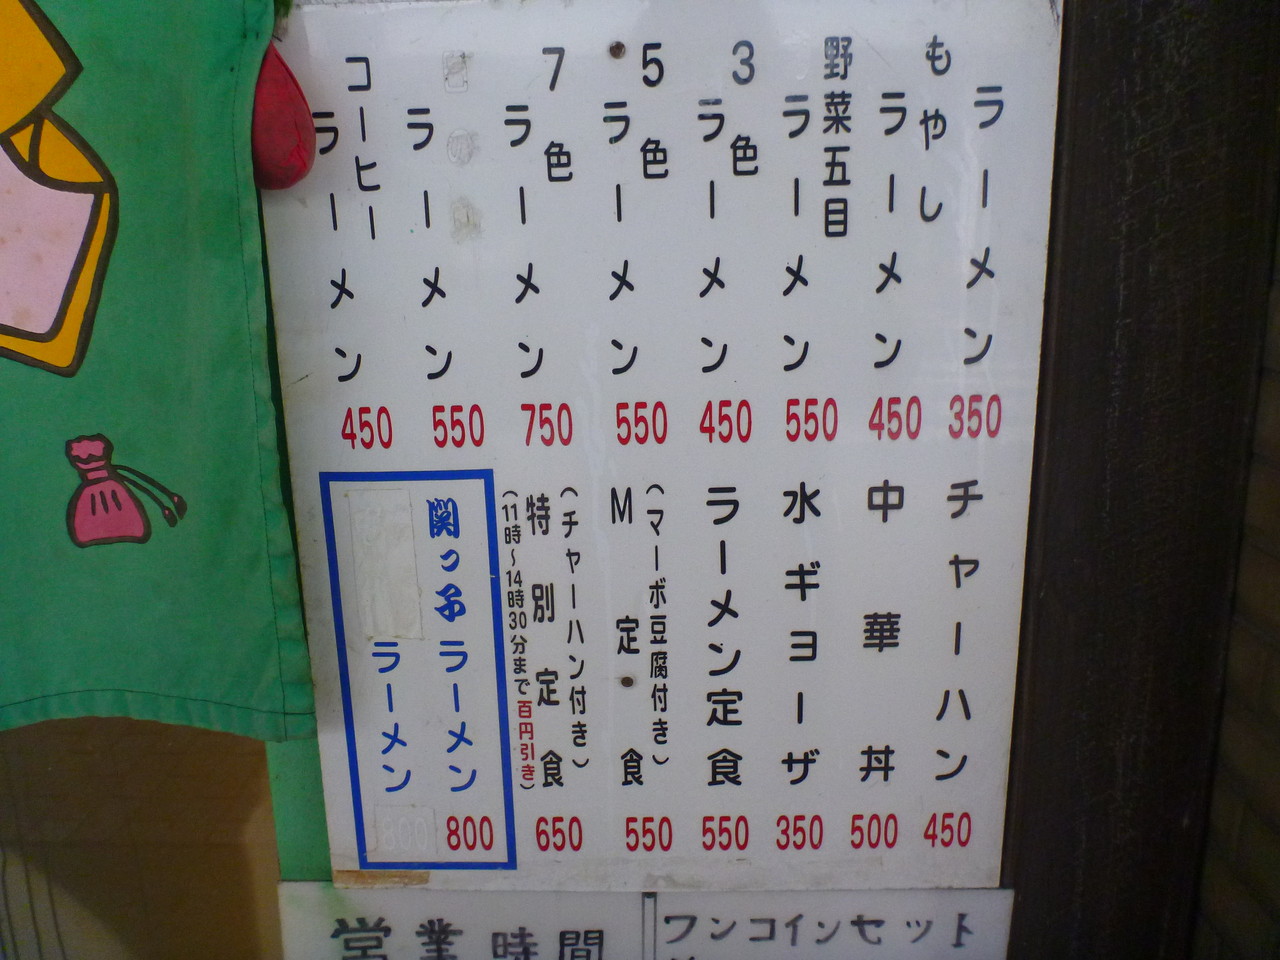 ラーメン 350
もやしラーメン 450
野菜五目ラーメン 550
3色ラーメン 450
5色ラーメン 550
7色ラーメン 750
ラーメン 550
コーヒーラーメン 450
チャーハン 450
中華丼 500
水ギョーザ 350
ラーメン定食 550
(マーボ豆腐付き)
M定食 550
(チャーハン付き)
特別定食 650
(11時~14時30分まで百円引き)
関っ子ラーメン 800
ラーメン 800
営業時間
ワンコインセット